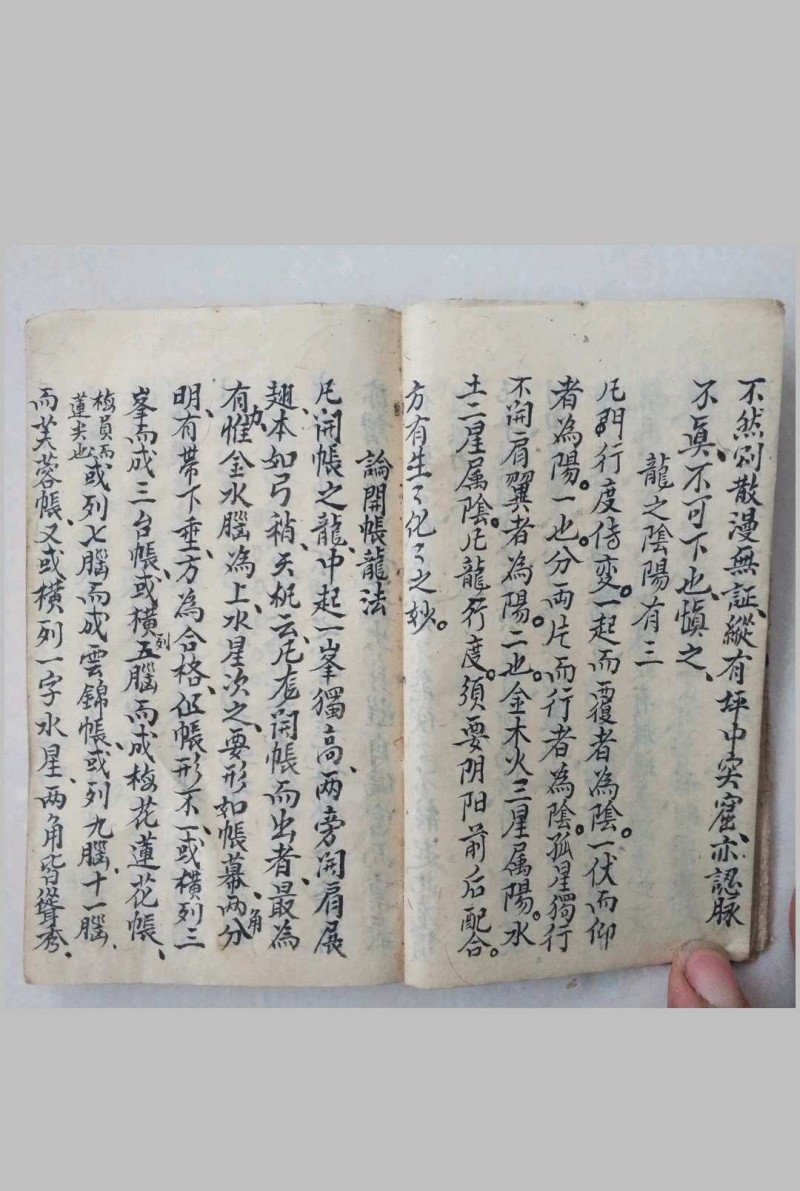 不然則散漫無証、縱有坪中突窟、亦認脉
不眞、不可下也、慎之、
龍之陰陽有三
凡門行度侍变。一起而覆者為陰。一伏而仰
者為陽。一也。分兩片而行者為陰。孤星獨行
不開肩翼者為陽。二也。金木火三星属陽。水
土二星属陰。凡龍行度。須要阴阳前后配合。
方有生〻化〻之妙。
論開帳龍法
凡開帳之龍、中起一峯獨高、兩旁開肩展
翅、本如弓稍、天机云、凡龙開帳而出者、最為
有力、惟金水腦為上、水星次之、要形如帳幕、兩角分
明、有帶下垂、方為合格、但帳形不一、或橫列三
峯而成三台帳、或橫列五腦而成梅花蓮花帳、
梅員而蓮尖也、或列七腦而成雲錦帳、或列九腦、十一腦、
而芙蓉帳、又或橫列一字水星、两角皆聳秀、